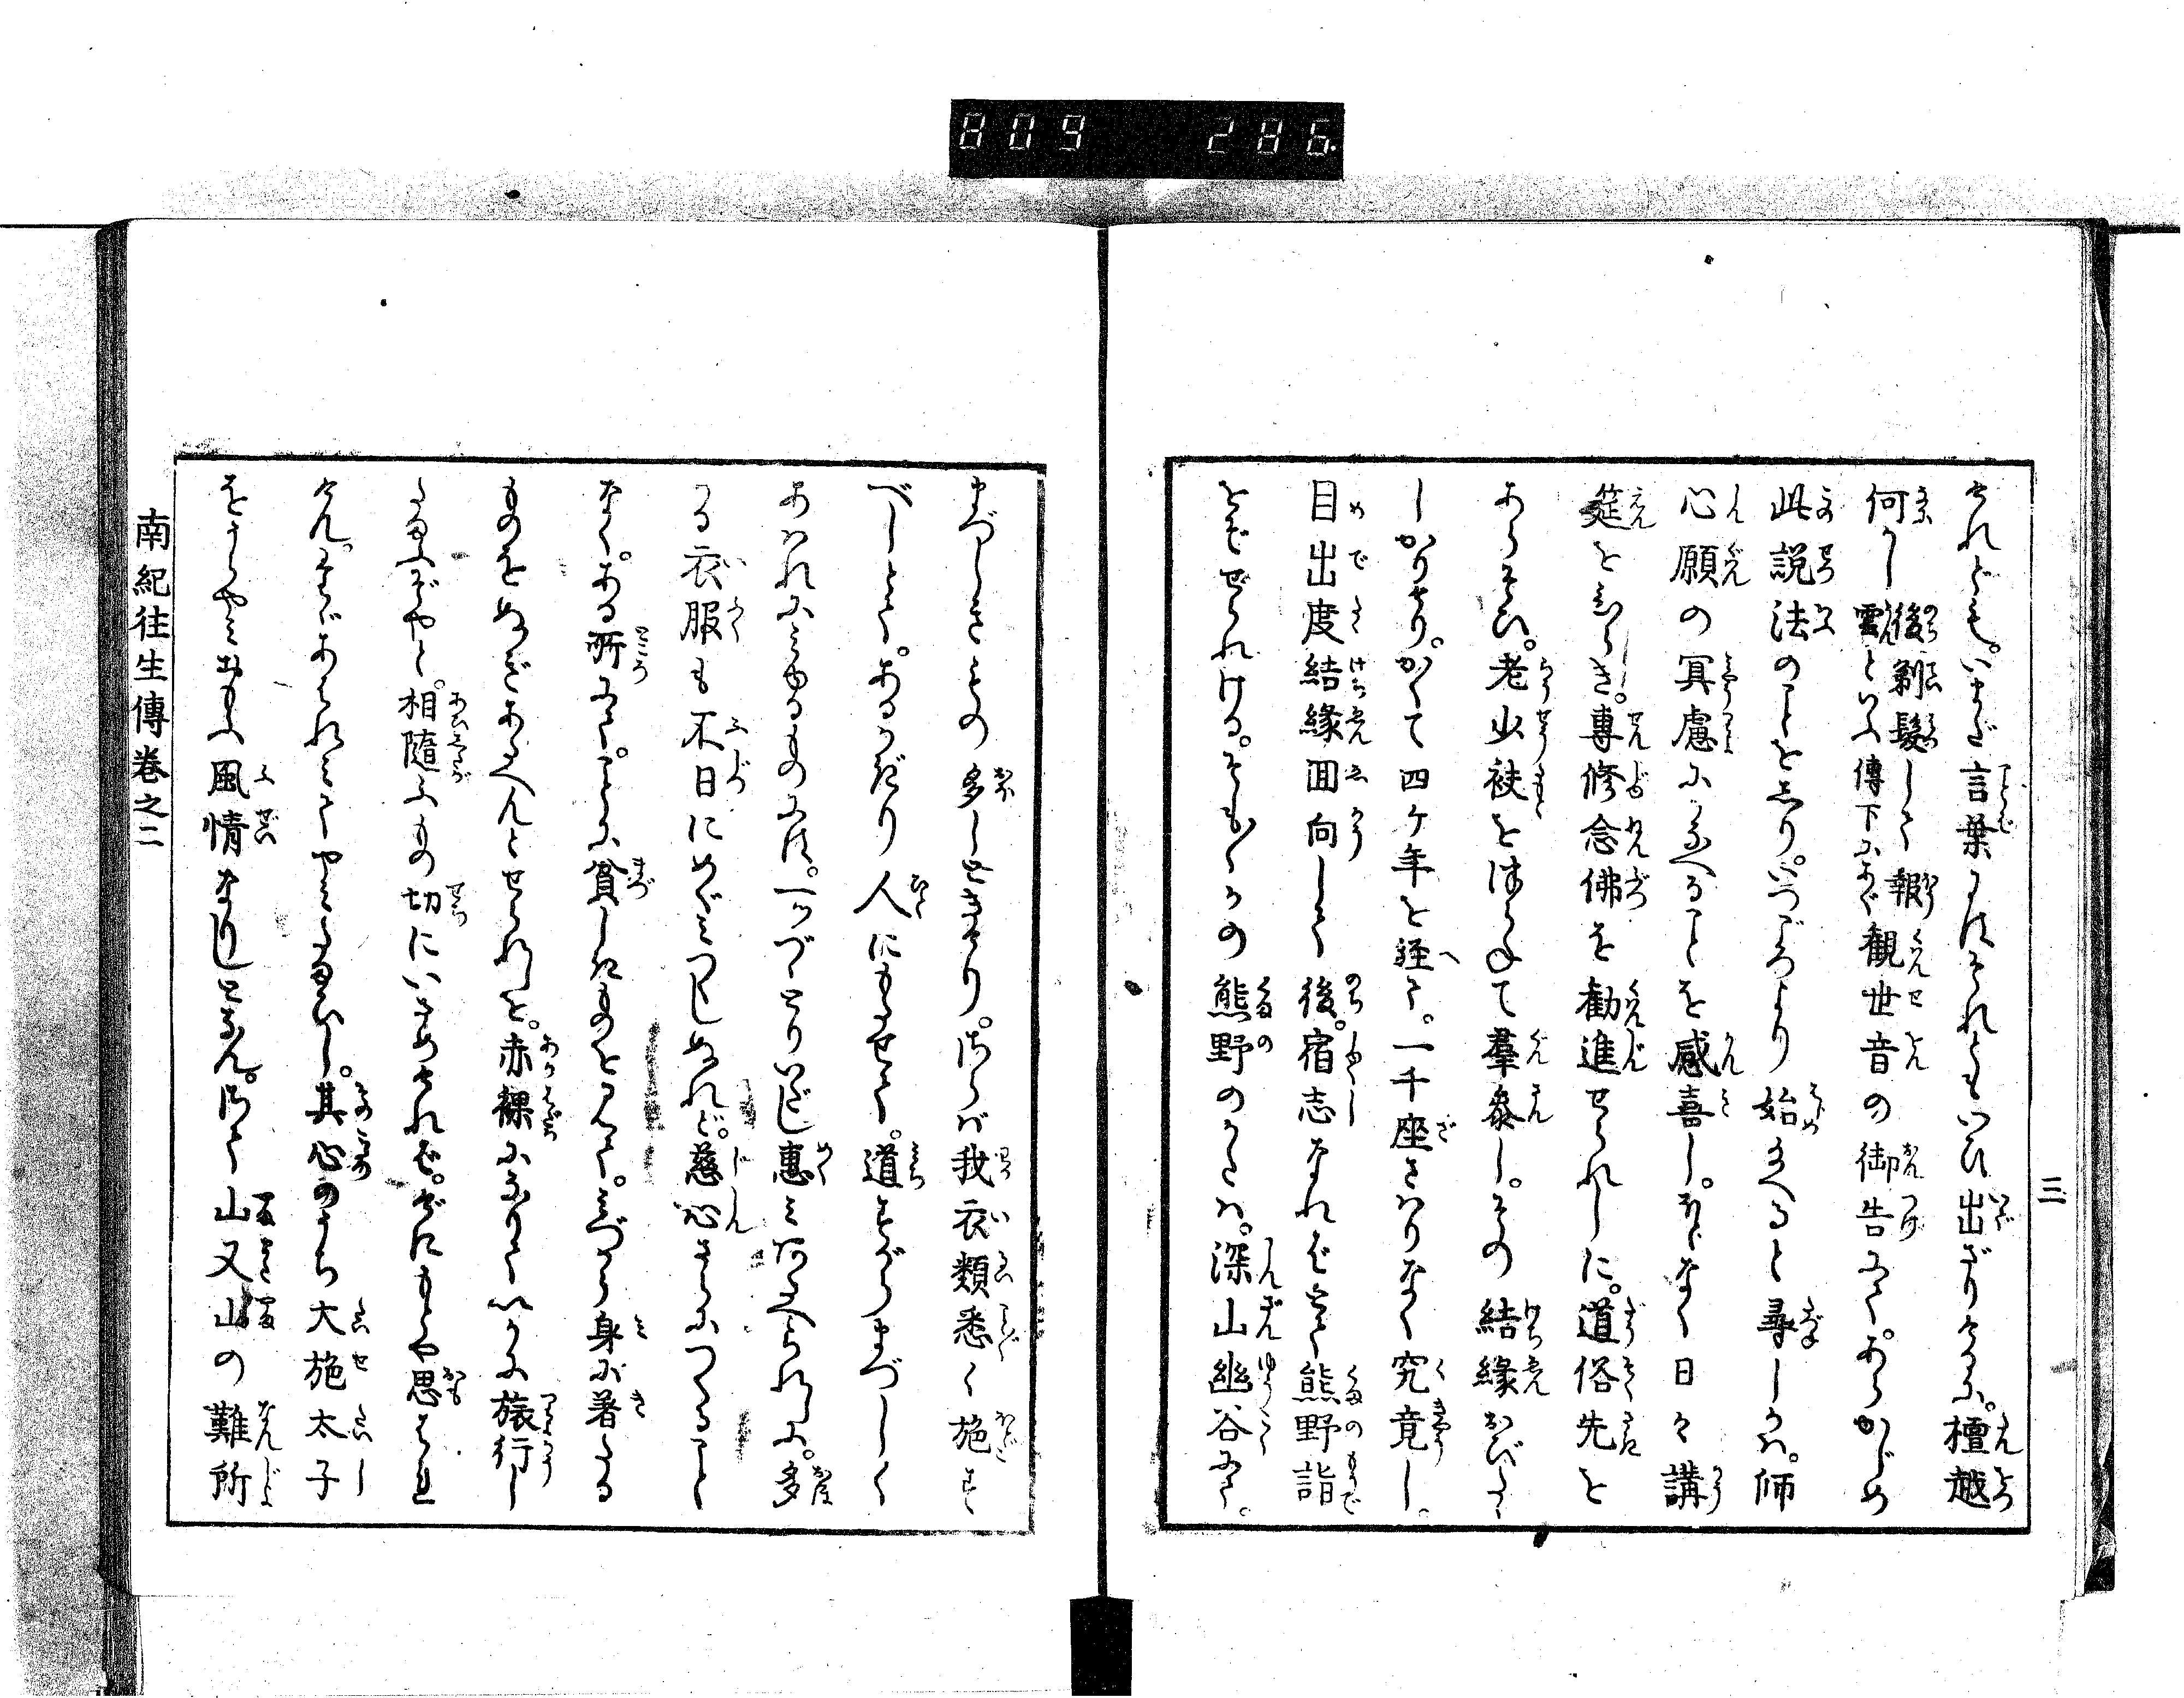 809 286.
三
されども。いまだ言葉にはそれともいひ出ざりけるに。檀越
何がし後剃髪して報雲といふ傳下にあり観世音の御告にて。あらかじめ
此説法のことをしり。いづちより始たまへると尋しかバ。師
心願の冥慮にかなへることを感喜し。ほどなく日々講
筵をひらき。專修念佛を勸進せられしに。道俗先を
あらそひ。老少袂をはらねて羣參し。その結縁おびたゝ
しかりけり。かくて四ケ年を経て。一千座さハりなく究竟し。
目出度結縁回向して後。宿志なればとて熊野詣
をぞせられける。そも〳〵かの熊野のかたハ。深山幽谷にて。
まづしきさとの多しときけり。さらバ我衣類悉く施す
べしとて。あるかぎり人にもたせて。道すがらまづしく
あハれにみゆるものにハ。一ツづゝとりいだし惠ミあたへられしに。多
かる衣服も不日にめぐミつくしぬれど。慈心さらにつくること
なく。ある所にて。ことに貧しきものをミて。ミづから身に着たる
ものをぬぎあたへんとせられしを。赤裸になりていかに旅行し
たまふぞやと。相隨ふもの切にいさめされば。げにもとや思はれ
けん。たゞあはれミてやミたまひし。其心のうち大施太子
をうらやミおもふ風情なりしとなん。さて山又山の難所
南紀往生傳巻之二